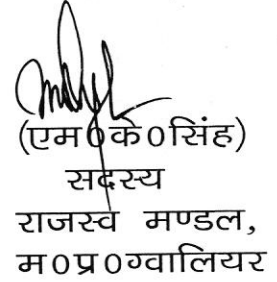 (एम0के0सिंह)
सदस्य
राजस्व मण्डल,
म0प्र0ग्वालियर